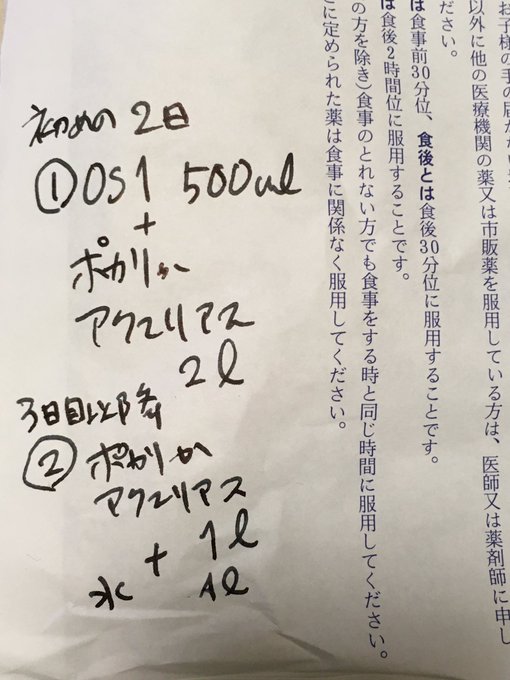 初めの2日
①OS1 500ml
+
ポカリか
アクエリアス
2l
3日目以降
②ポカリか
アクエリアス
1l
+
水 1l
以外に他の医療機関の薬又は市販薬を服用している方は、医師又は薬剤師に申し
ださい。
は食事前30分位、食後とは食後30分位に服用することです。
は食後2時間位に服用することです。
の方を除き)食事のとれない方でも食事をする時と同じ時間に服用してください。
に定められた薬は食事に関係なく服用してください。